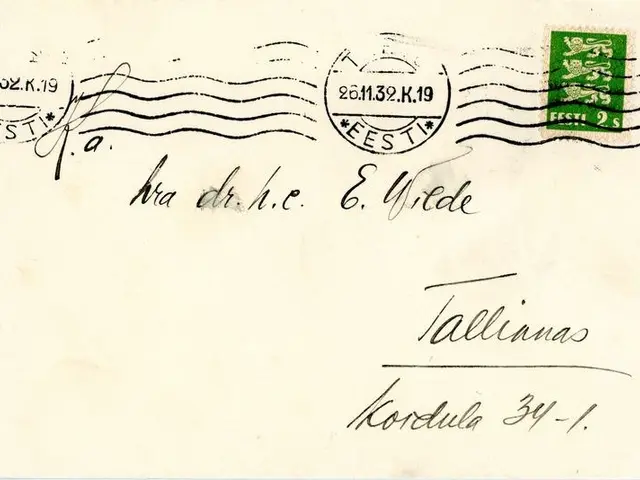 32.K.19
EESTI
T
26.11.32.K.19
*EESTI*
EESTI 2 S
K. a.
hra dr. h. c. E. Wilde
Tallinnas
Koidula 34-1.